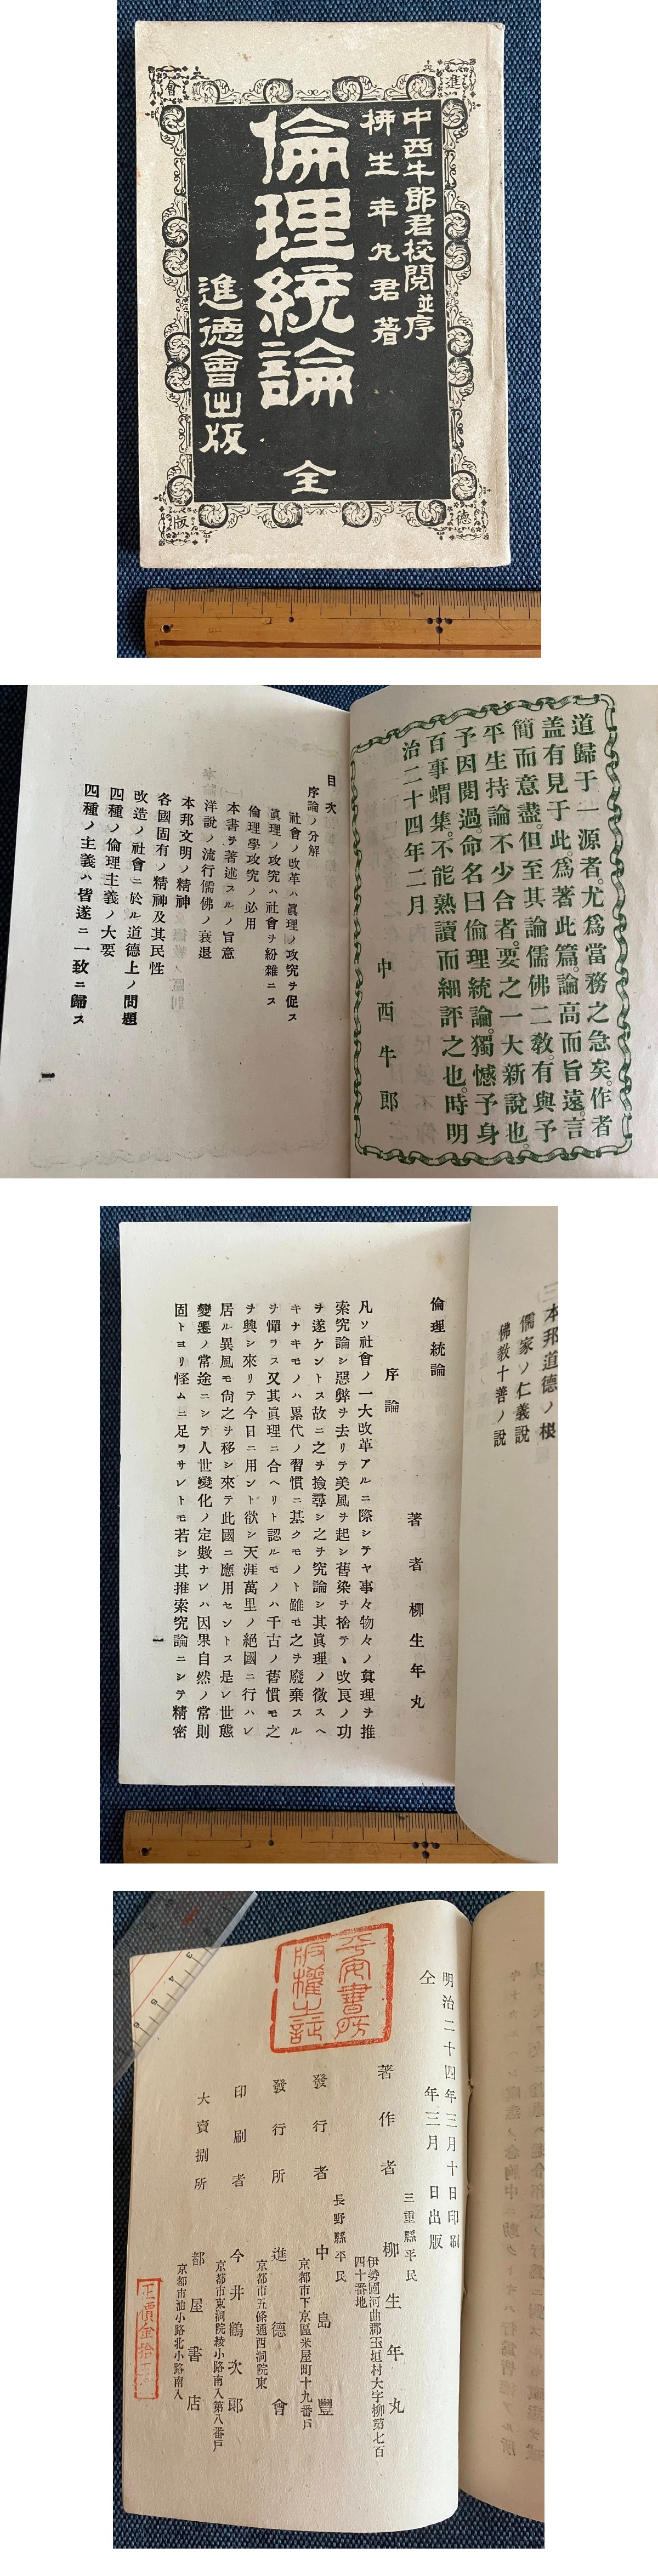 進
會
德
版
中西牛郎君校閱並序
柳生年丸君著
倫理統論
全
進德會出版
道歸于一源者。尤爲當務之急矣。作者
盖有見于此。爲著此篇。論高而旨遠。言
簡而意盡。但至其論儒佛二教。有與予
平生持論不少合者。要之一大新說也。
予因閱過。命名曰倫理統論。獨憾予身
百事蝟集。不能熟讀而細評之也。時明
治二十四年二月
中西牛郎
目次
序論ノ分解
社會ノ改革ハ眞理ノ攻究ヲ促ス
眞理ノ攻究ハ社會ヲ紛雜ニス
倫理學攻究ノ必用
本書ヲ著述スルノ旨意
洋說ノ流行儒佛ノ衰退
本邦文明ノ精神
各國固有ノ精神及其民性
改造ノ社會ニ於ル道德上ノ問題
四種ノ倫理主義ノ大要
四種ノ主義ハ皆遂ニ一致ニ歸ス
一
本邦道德ノ根
儒家ノ仁義說
佛教十善ノ說
倫理統論
著者 柳生年丸
序論
凡ソ社會ノ一大改革アルニ際シテヤ事々物々ノ眞理ヲ推
索究論シ惡弊ヲ去リテ美風ヲ起シ舊染ヲ捨テヽ改良ノ功
ヲ遂ケントス故ニ之ヲ撿尋シ之ヲ究論シ其眞理ノ徵スヘ
キナキモノハ累代ノ習慣ニ基クモノト雖モ之ヲ廢棄スル
ヲ憚ラス又其眞理ニ合ヘリト認ルモノハ千古ノ舊慣モ之
ヲ興シ來リテ今日ニ用ント欲シ天涯萬里ノ絕國ニ行ハレ
居ル異風モ尙之ヲ移シ來テ此國ニ應用セントス是レ世態
變遷ノ常途ニシテ人世變化ノ定數ナレハ因果自然ノ常則
固トヨリ怪ムニ足ヲサレトモ若シ其推索究論ニシテ精密
一
平安書所
版權之記
明治二十四年三月十日印刷
仝 年三月 日出版
三重縣平民
著作者 柳生年丸
伊勢國河曲郡玉垣村大字柳第七百
四十番地
長野縣平民
發行者 中島豐
京都市下京區米屋町十九番戶
發行所 進德會
京都市五條通西洞院東
印刷者 今井鶴次郎
京都市東洞院綾小路南入第八番戶
大賣捌所 都屋書店
京都市油小路北小路南入
正價金拾五